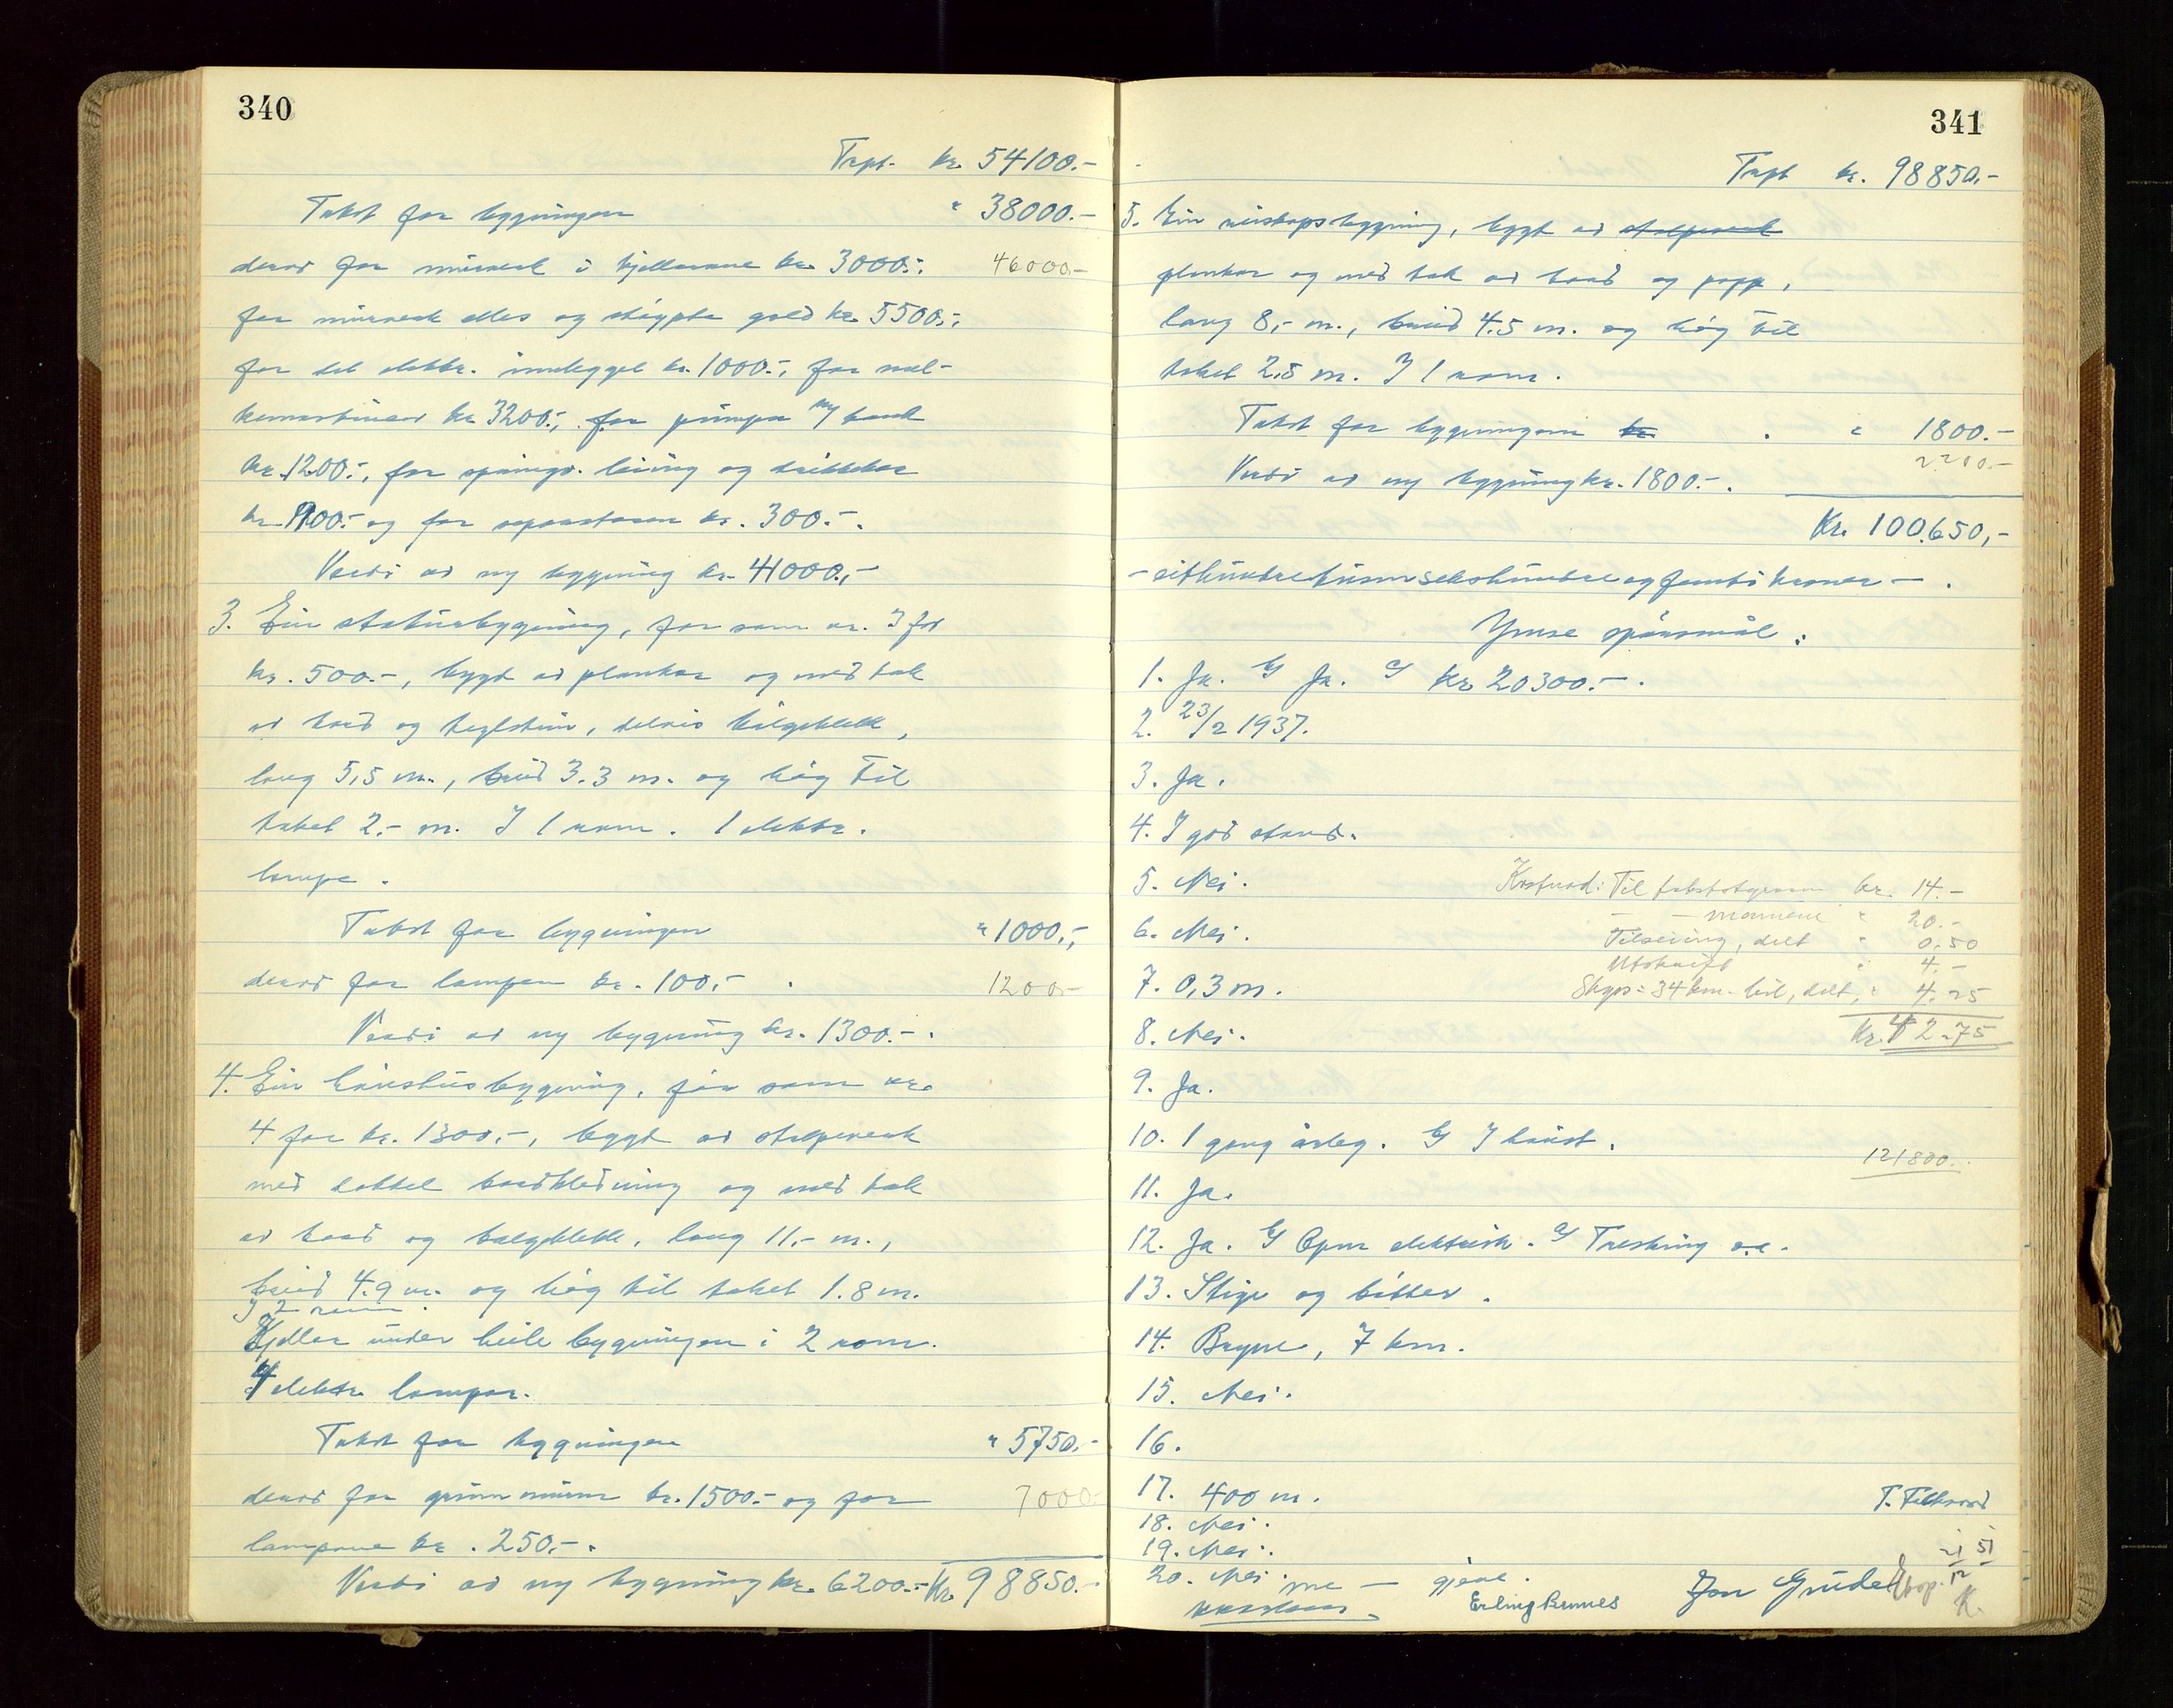 340
Trpt. kr. 54100.-
Takst for bygningen " 38000.-
derav for murverk i kjellarane kr. 3000.-, 46000.-
for murverk elles og støypte golv kr. 5500.-,
for det elektr. innlegget kr. 1000.-, for mel-
kemaskinen kr. 3200.-, for pumpa m/ tank
kr. 1200.-, for springv. leiing og drikkekar
kr. 1100.- og for separatoren kr. 300.-.
Verdi av ny bygning kr. 41000.-
3. Ein bygning, før som nr. 3 for
kr. 500.-, bygt av plankar og med tak
av bord og teglstein, delvis bølgeblekk,
lang 5,5 m., breid 3.3 m. og høg til
taket 2.- m. I 1 rom. 1 elektr.
lampe.
Takst for bygningen " 1000.-,
derav for lampen kr. 100.- . 1200.-
Verdi av ny bygning kr. 1300.-.
4. Ein hønshusbygning, før som nr.
4 for kr. 1300.-, bygt av stolpeverk
med dobbel bordkledning og med tak
av bord og bølgeblekk, lang 11.- m.,
breid 4.9 m. og høg til taket 1.8 m.
I 2 rom.
Kjeller under heile bygningen i 2 rom.
4 elektr. lampar.
Takst for bygningen " 5750.-
derav for grunnmuren kr. 1500.- og for 7000.-
lampane kr. 250.-.
Verdi av ny bygning kr. 6200.- Kr. 98850.-
341
Trpt kr. 98850.-
5. Ein reiskapsbygning, bygt av stolpeverk
plankar og med tak av bord og papp,
lang 8,- m., breid 4.5 m. og høg til
taket 2,5 m. I 1 rom.
Takst for bygningen kr. " 1800.-
2200.-
Verdi av ny bygning kr. 1800.-.
Kr. 100.650,-
- eithundretusensekshundreogfemti kroner - .
Ymse spørsmål:
1. Ja. b) Ja. c) kr. 20300.-.
2. 23/2 1937.
3. Ja.
4. I god stand.
5. Nei. Kostnad: Til takstutgreiing kr. 14.-
- - mennene " 20.-
6. Nei. Tilseiing, delt " 0.50
Utskrift " 4.-
7. 0,3 m. Skyss = 34 km. bil, delt, " 4.25
8. Nei. Kr. 42.75
9. Ja.
10. 1 gong årleg. b) I haust.
121800.-
11. Ja.
12. Ja. b) Open elektrisk. c) Tresking o.a.
13. Stige og bøtter.
14. Bryne, 7 km.
15. Nei.
16.
17. 400 m. T.
18. Nei.
19. Nei. 21 51
20. Nei. me - gjeve. 12
Erling Jon Gudel K.